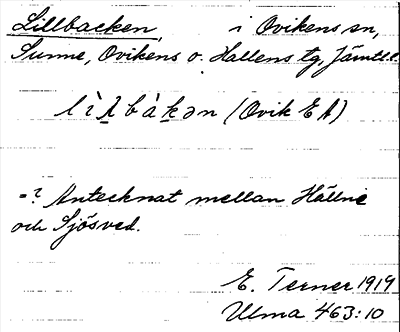 Lillbacken, i Ovikens sn,
Sunne, Ovikens o. Hallens tg, Jämtl. l.
(Ovik E A)
=? Antecknat mellan Hällne
och Sjösved.
E. Terner 1919
Ulma 463:10